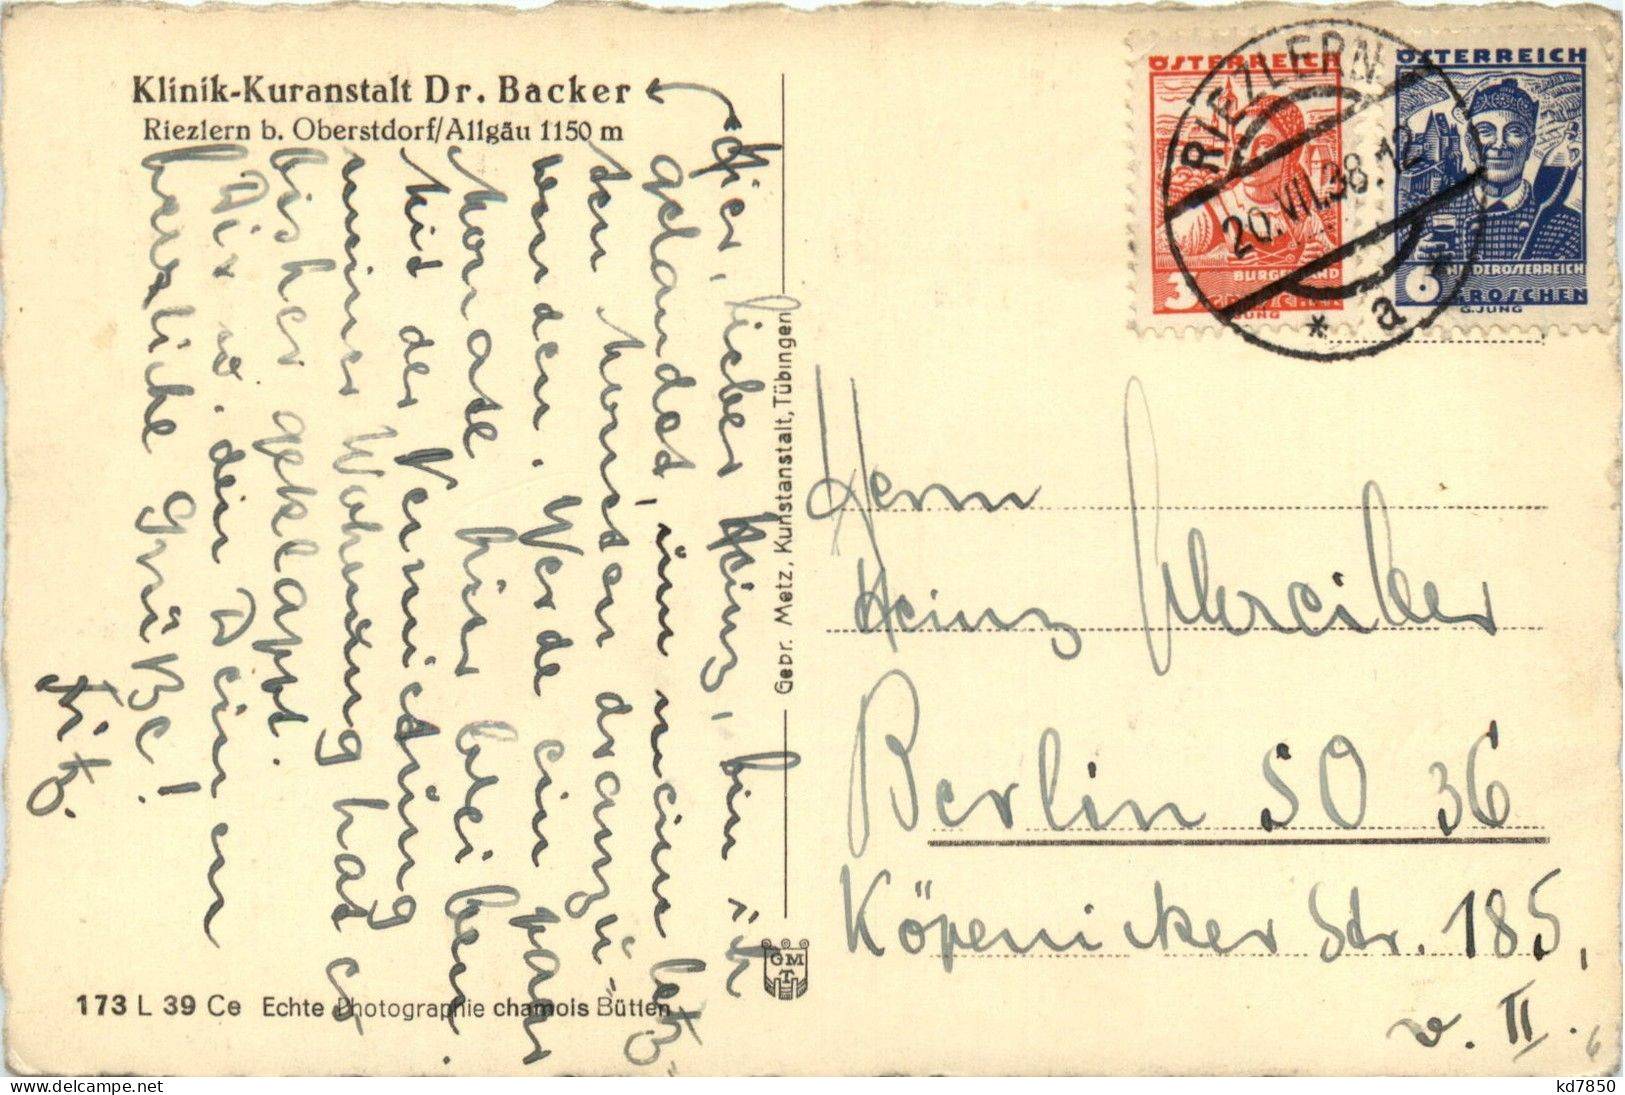 Klinik-Kuranstalt Dr. Backer
Riezlern b. Oberstdorf/Allgäu 1150 m
Hier, lieber Heinz, bin ich
gelandet, um meine letz-
ten
wenden. Werde ein paar
Monate hier bleiben.
Mit der Vermietung
meiner Wohnung hat es
bisher geklappt.
Dir u. den Deinen
herzliche Grüße!
Fritz.
Gebr. Metz, Kunstanstalt, Tübingen
GMT
173 L 39 Ce Echte Photographie chamois Bütten
ÖSTERREICH
BURGENLAND
3 GROSCHEN
G.JUNG
ÖSTERREICH
NIEDERÖSTERREICH
6 GROSCHEN
G.JUNG
RIEZLERN
20.VII.38.12
* a *
Herrn
Heinz Schreiber
Berlin SO 36
Köpenicker Str. 185,
v. II.
6
kd7850